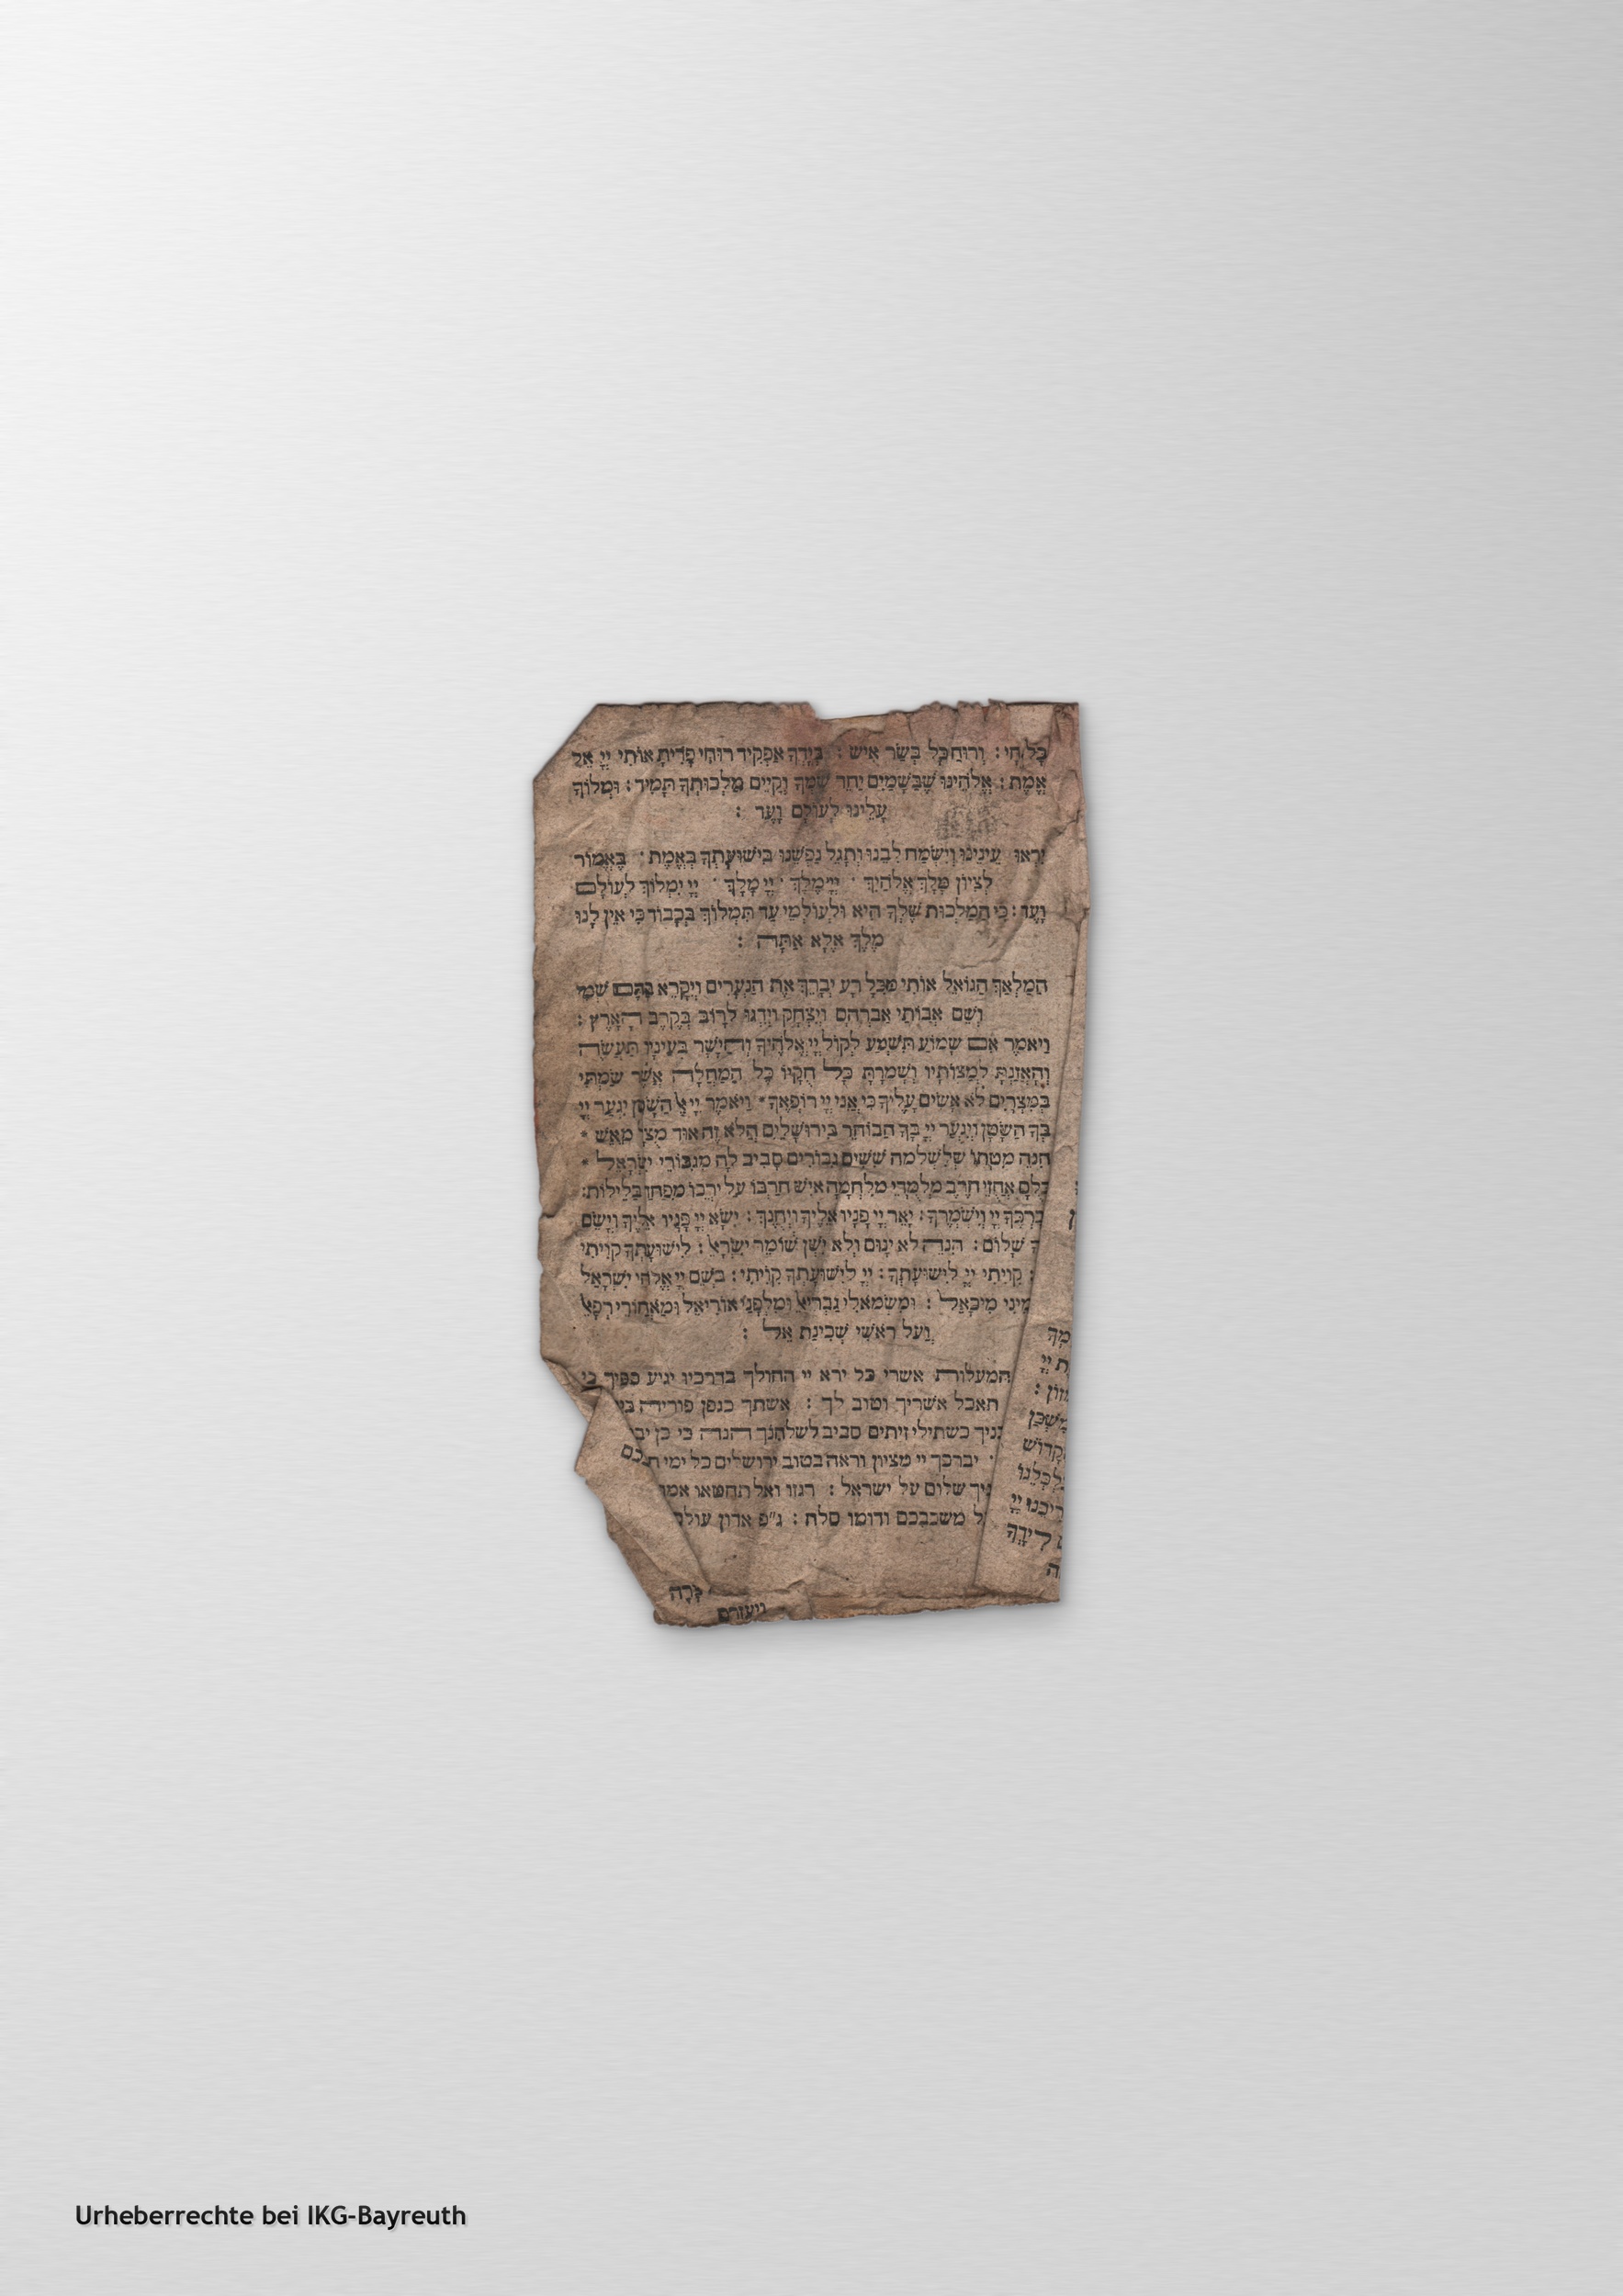 כָּל חָי : וְרוּחַ כָּל בְּשַׂר אִישׁ : בְּיָדְךָ אַפְקִיד רוּחִי פָּדִיתָ אוֹתִי יְיָ אֵל
אֱמֶת : אֱלֹהֵינוּ שֶׁבַּשָּׁמַיִם יַחֵד שִׁמְךָ וְקַיֵּים מַלְכוּתְךָ תָּמִיד : וּמְלוֹךְ
עָלֵינוּ לְעוֹלָם וָעֶד :
יִרְאוּ עֵינֵינוּ וְיִשְׂמַח לִבֵּנוּ וְתָגֵל נַפְשֵׁנוּ בִּישׁוּעָתְךָ בֶּאֱמֶת · בֶּאֱמוֹר
לְצִיּוֹן מָלַךְ אֱלֹהָיִךְ · יְיָ מֶלֶךְ · יְיָ מָלָךְ · יְיָ יִמְלוֹךְ לְעוֹלָם
וָעֶד : כִּי הַמַּלְכוּת שֶׁלְּךָ הִיא וּלְעוֹלְמֵי עַד תִּמְלוֹךְ בְּכָבוֹד כִּי אֵין לָנוּ
מֶלֶךְ אֶלָּא אַתָּה :
הַמַּלְאָךְ הַגּוֹאֵל אוֹתִי מִכָּל רָע יְבָרֵךְ אֶת הַנְּעָרִים וְיִקָּרֵא בָהֶם שְׁמִי
וְשֵׁם אֲבוֹתַי אַבְרָהָם וְיִצְחָק וְיִדְגּוּ לָרוֹב בְּקֶרֶב הָאָרֶץ :
וַיֹּאמֶר אִם שָׁמוֹעַ תִּשְׁמַע לְקוֹל יְיָ אֱלֹהֶיךָ וְהַיָּשָׁר בְּעֵינָיו תַּעֲשֶׂה
וְהַאֲזַנְתָּ לְמִצְוֹתָיו וְשָׁמַרְתָּ כָּל חֻקָּיו כָּל הַמַּחֲלָה אֲשֶׁר שַׂמְתִּי
בְמִצְרַיִם לֹא אָשִׂים עָלֶיךָ כִּי אֲנִי יְיָ רוֹפְאֶךָ * וַיֹּאמֶר יְיָ אֶל הַשָּׂטָן יִגְעַר יְיָ
בְּךָ הַשָּׂטָן וְיִגְעַר יְיָ בְּךָ הַבּוֹחֵר בִּירוּשָׁלַיִם הֲלֹא זֶה אוּד מֻצָּל מֵאֵשׁ *
הִנֵּה מִטָּתוֹ שֶׁלִּשְׁלֹמֹה שִׁשִּׁים גִּבּוֹרִים סָבִיב לָהּ מִגִּבּוֹרֵי יִשְׂרָאֵל *
כֻּלָּם אֲחֻזֵי חֶרֶב מְלֻמְּדֵי מִלְחָמָה אִישׁ חַרְבּוֹ עַל יְרֵכוֹ מִפַּחַד בַּלֵּילוֹת :
בָרֶכְךָ יְיָ וְיִשְׁמְרֶךָ : יָאֵר יְיָ פָּנָיו אֵלֶיךָ וִיחֻנֶּךָּ : יִשָּׂא יְיָ פָּנָיו אֵלֶיךָ וְיָשֵׂם
ךָ שָׁלוֹם : הִנֵּה לֹא יָנוּם וְלֹא יִישָׁן שׁוֹמֵר יִשְׂרָאֵל : לִישׁוּעָתְךָ קִוִּיתִי
: קִוִּיתִי יְיָ לִישׁוּעָתְךָ : יְיָ לִישׁוּעָתְךָ קִוִּיתִי : בְּשֵׁם יְיָ אֱלֹהֵי יִשְׂרָאֵל
מִינִי מִיכָאֵל : וּמִשְּׂמֹאלִי גַּבְרִיאֵל וּמִלְּפָנַי אוֹרִיאֵל וּמֵאֲחוֹרַי רְפָאֵל
וְעַל רֹאשִׁי שְׁכִינַת אֵל :
המעלות אשרי כל ירא יי ההולך בדרכיו יגיע כפיך כי
תאכל אשריך וטוב לך : אשתך כגפן פוריה
בניך כשתילי זיתים סביב לשלחנך הנה כי כן יב
· יברכך יי מציון וראה בטוב ירושלים כל ימי
ניך שלום על ישראל : רגזו ואל תחטאו אמ
ל משכבכם ודומו סלה : ג״פ אדון עולם
מְךָ
ת יְיָ
זוֹן :
קָדוֹשׁ
יְיָ
כם
ויעזרם
Urheberrechte bei IKG-Bayreuth